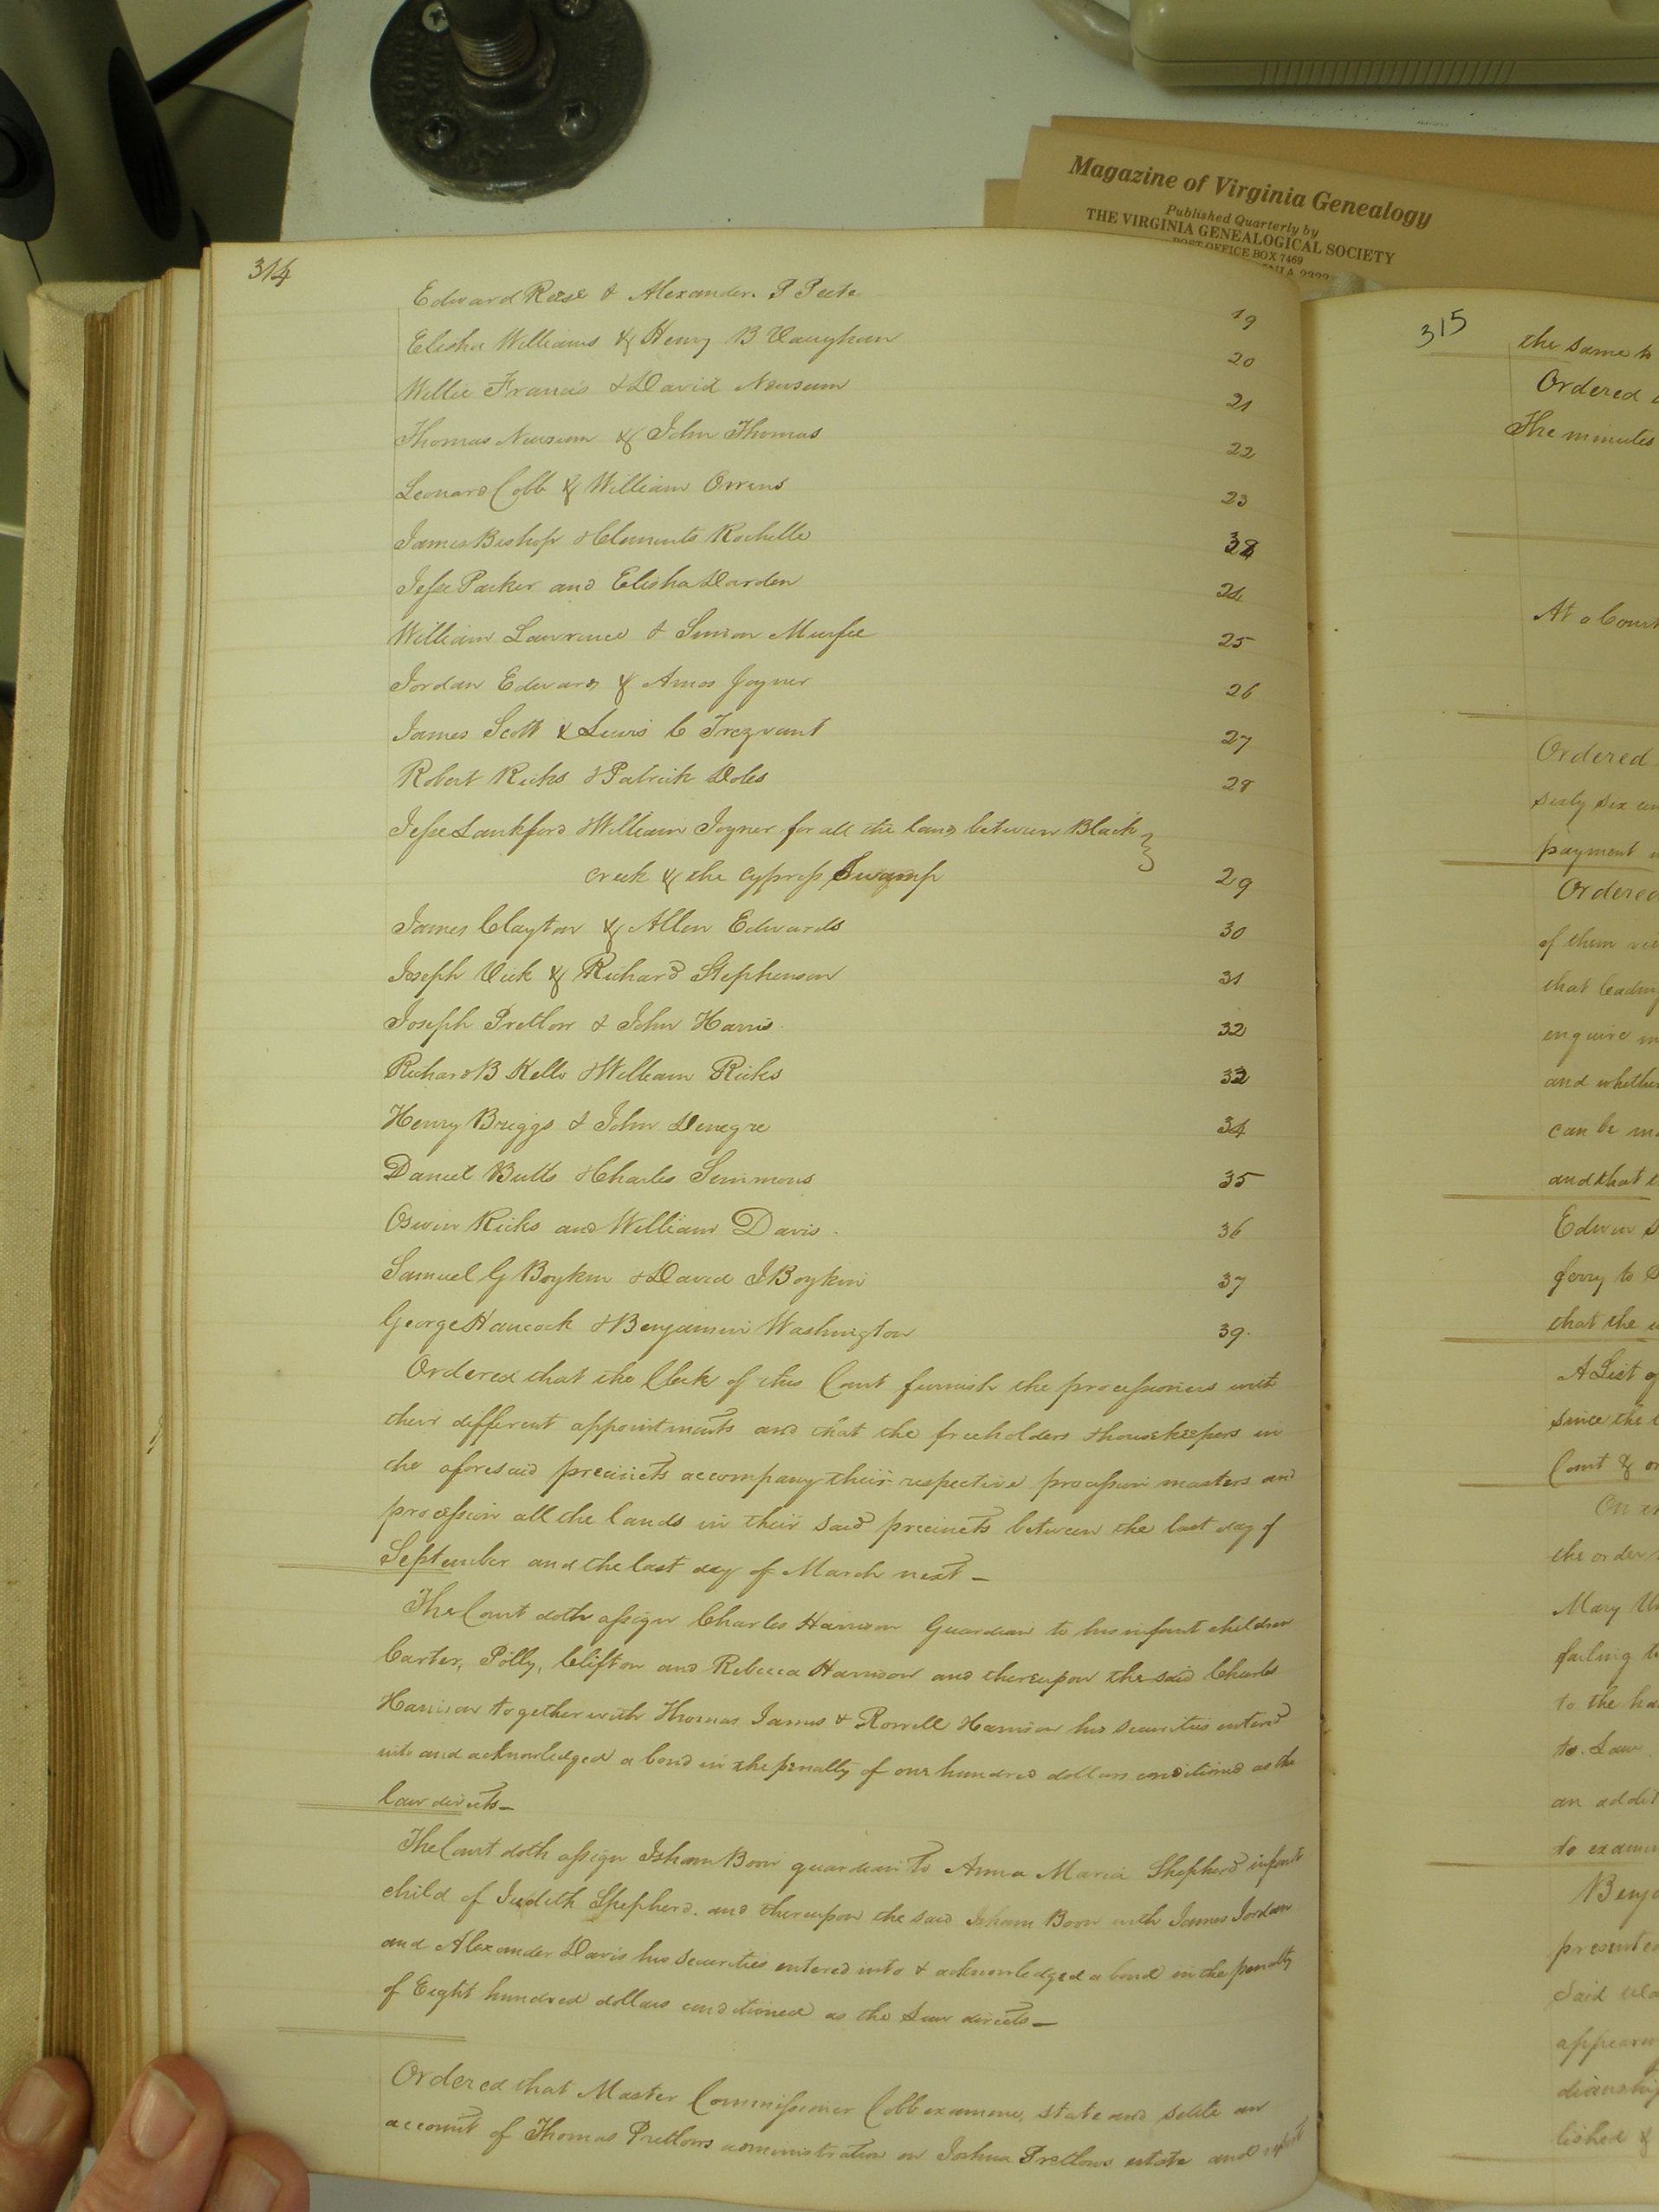 Magazine of Virginia Genealogy
Published Quarterly by
THE VIRGINIA GENEALOGICAL SOCIETY
POST OFFICE BOX 7469
314
Edward Reese & Alexander. P Peete 19
Elisha Williams & Henry B Vaughan 20
Willie Francis & David Newsum 21
Thomas Newsum & John Thomas 22
Leonard Cobb & William Orrens 23
James Bishop & Clements Rochelle 38
Jesse Parker and Elisha Darden 24
William Lawrence & Simon Murfee 25
Jordan Edwards & Amos Joyner 26
James Scott & Lewis C Trezvant 27
Robert Ricks & Patrick Doles 28
Jesse Lankford & William Joyner for all the land between Black
creek & the cypress Swamp 29
James Clayton & Allen Edwards 30
Joseph Vick & Richard Stephenson 31
Joseph Pretlow & John Harris 32
Richard B Kello & William Ricks 33
Henry Briggs & John Denegre 34
Daniel Butts & Charles Simmons 35
Oswin Ricks and William Davis 36
Samuel G Boykin & David J Boykin 37
George Hancock & Benjamin Washington 39.
Ordered that the Clerk of this Court furnish the processioners with
their different appointments and that the freeholders & housekeepers in
the aforesaid precincts accompany their respective procession masters and
procession all the lands in their said precincts between the last day of
September and the last day of March next –
The Court doth assign Charles Harrison Guardian to his infant children
Carter, Polly, Clifton and Rebecca Harrison and thereupon the said Charles
Harrison together with Thomas James & Rowell Harrison his securities entered
into and acknowledged a bond in the penalty of one hundred dollars conditioned as the
law directs –
The Court doth assign Isham Boon guardian to Anna Maria Shepherd infant
child of Judith Shepherd. and thereupon the said Isham Boon with James Jordan
and Alexander Davis his securities entered into & acknowledged a bond in the penalty
of Eight hundred dollars conditioned as the Law directs –
Ordered that Master Commissioner Cobb examine, state and settle an
account of Thomas Pretlows administration on Joshua Pretlows estate and report
315
the same to
Ordered
The minutes
At a Court
Ordered
sixty six
payment
Ordered
of them
that leading
enquire
and whether
can be
and that
Edwin
ferry to
that the
A List of
since the
Court &
On
the order
Mary
failing to
to the
to. Law
an addit
to examin
Benj
presented
said
appear
dianship
lished &